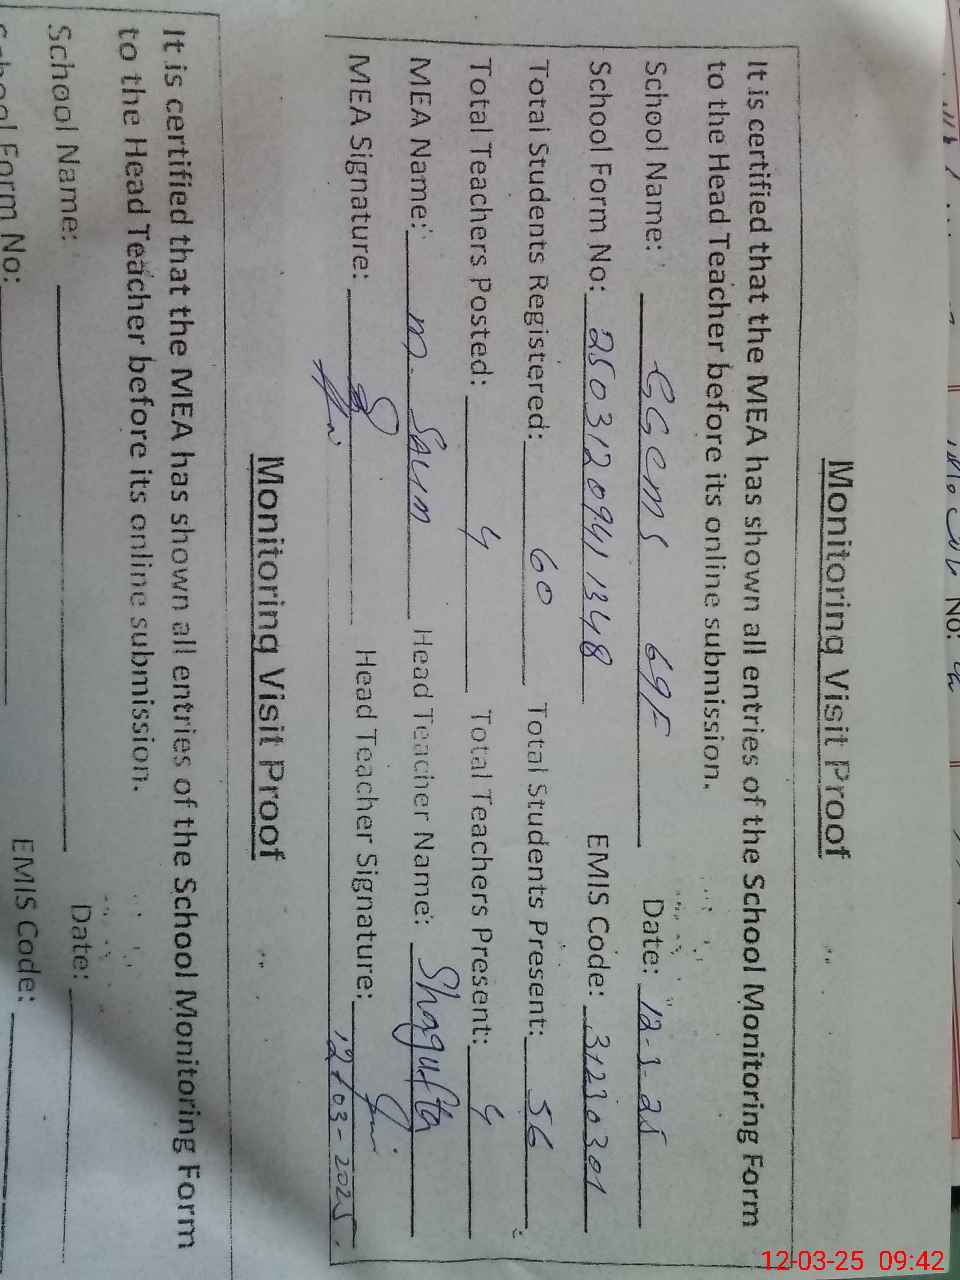 Monitoring Visit Proof
It is certified that the MEA has shown all entries of the School Monitoring Form
to the Head Teacher before its online submission.
School Name: GGCMS 69F Date: 12-3-25
School Form No: 25031209411348 EMIS Code: 31230301
Total Students Registered: 60 Total Students Present: 56
Total Teachers Posted: 4 Total Teachers Present: 4
MEA Name: M. Salim Head Teacher Name: Shagufta
MEA Signature: Head Teacher Signature:
12/03-2025.
Monitoring Visit Proof
It is certified that the MEA has shown all entries of the School Monitoring Form
to the Head Teacher before its online submission.
School Name: Date:
School Form No: EMIS Code:
No:
12-03-25 09:42